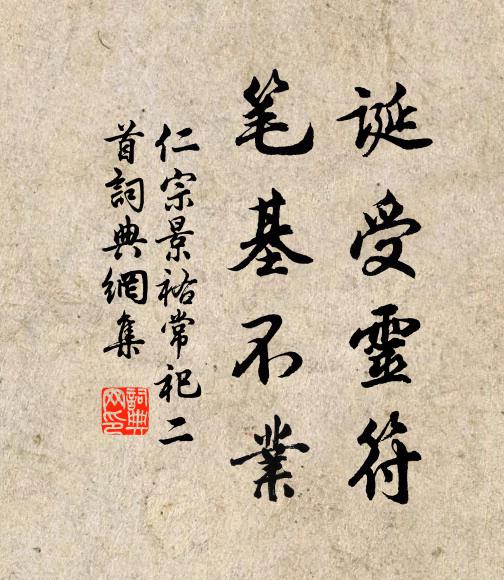 誕受靈符
笔基不業
仁宗景祐常祀二
首詞典網集
詞典
网印